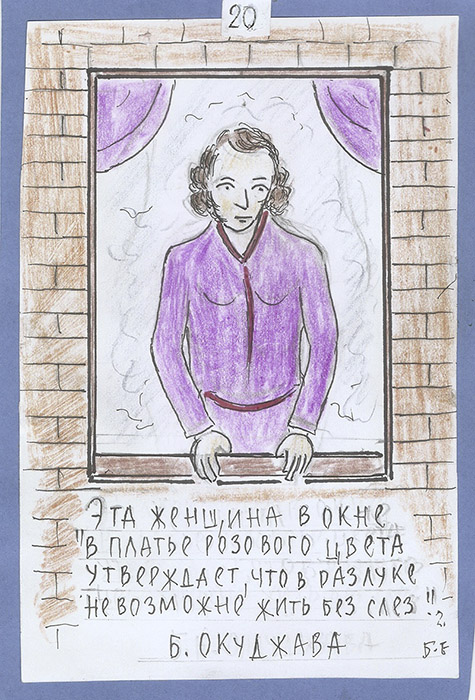 20
Эта женщина в окне
"в платье розового цвета
утверждает, что в разлуке
невозможно жить без слез"!
2.
Б. Окуджава
Б.Е